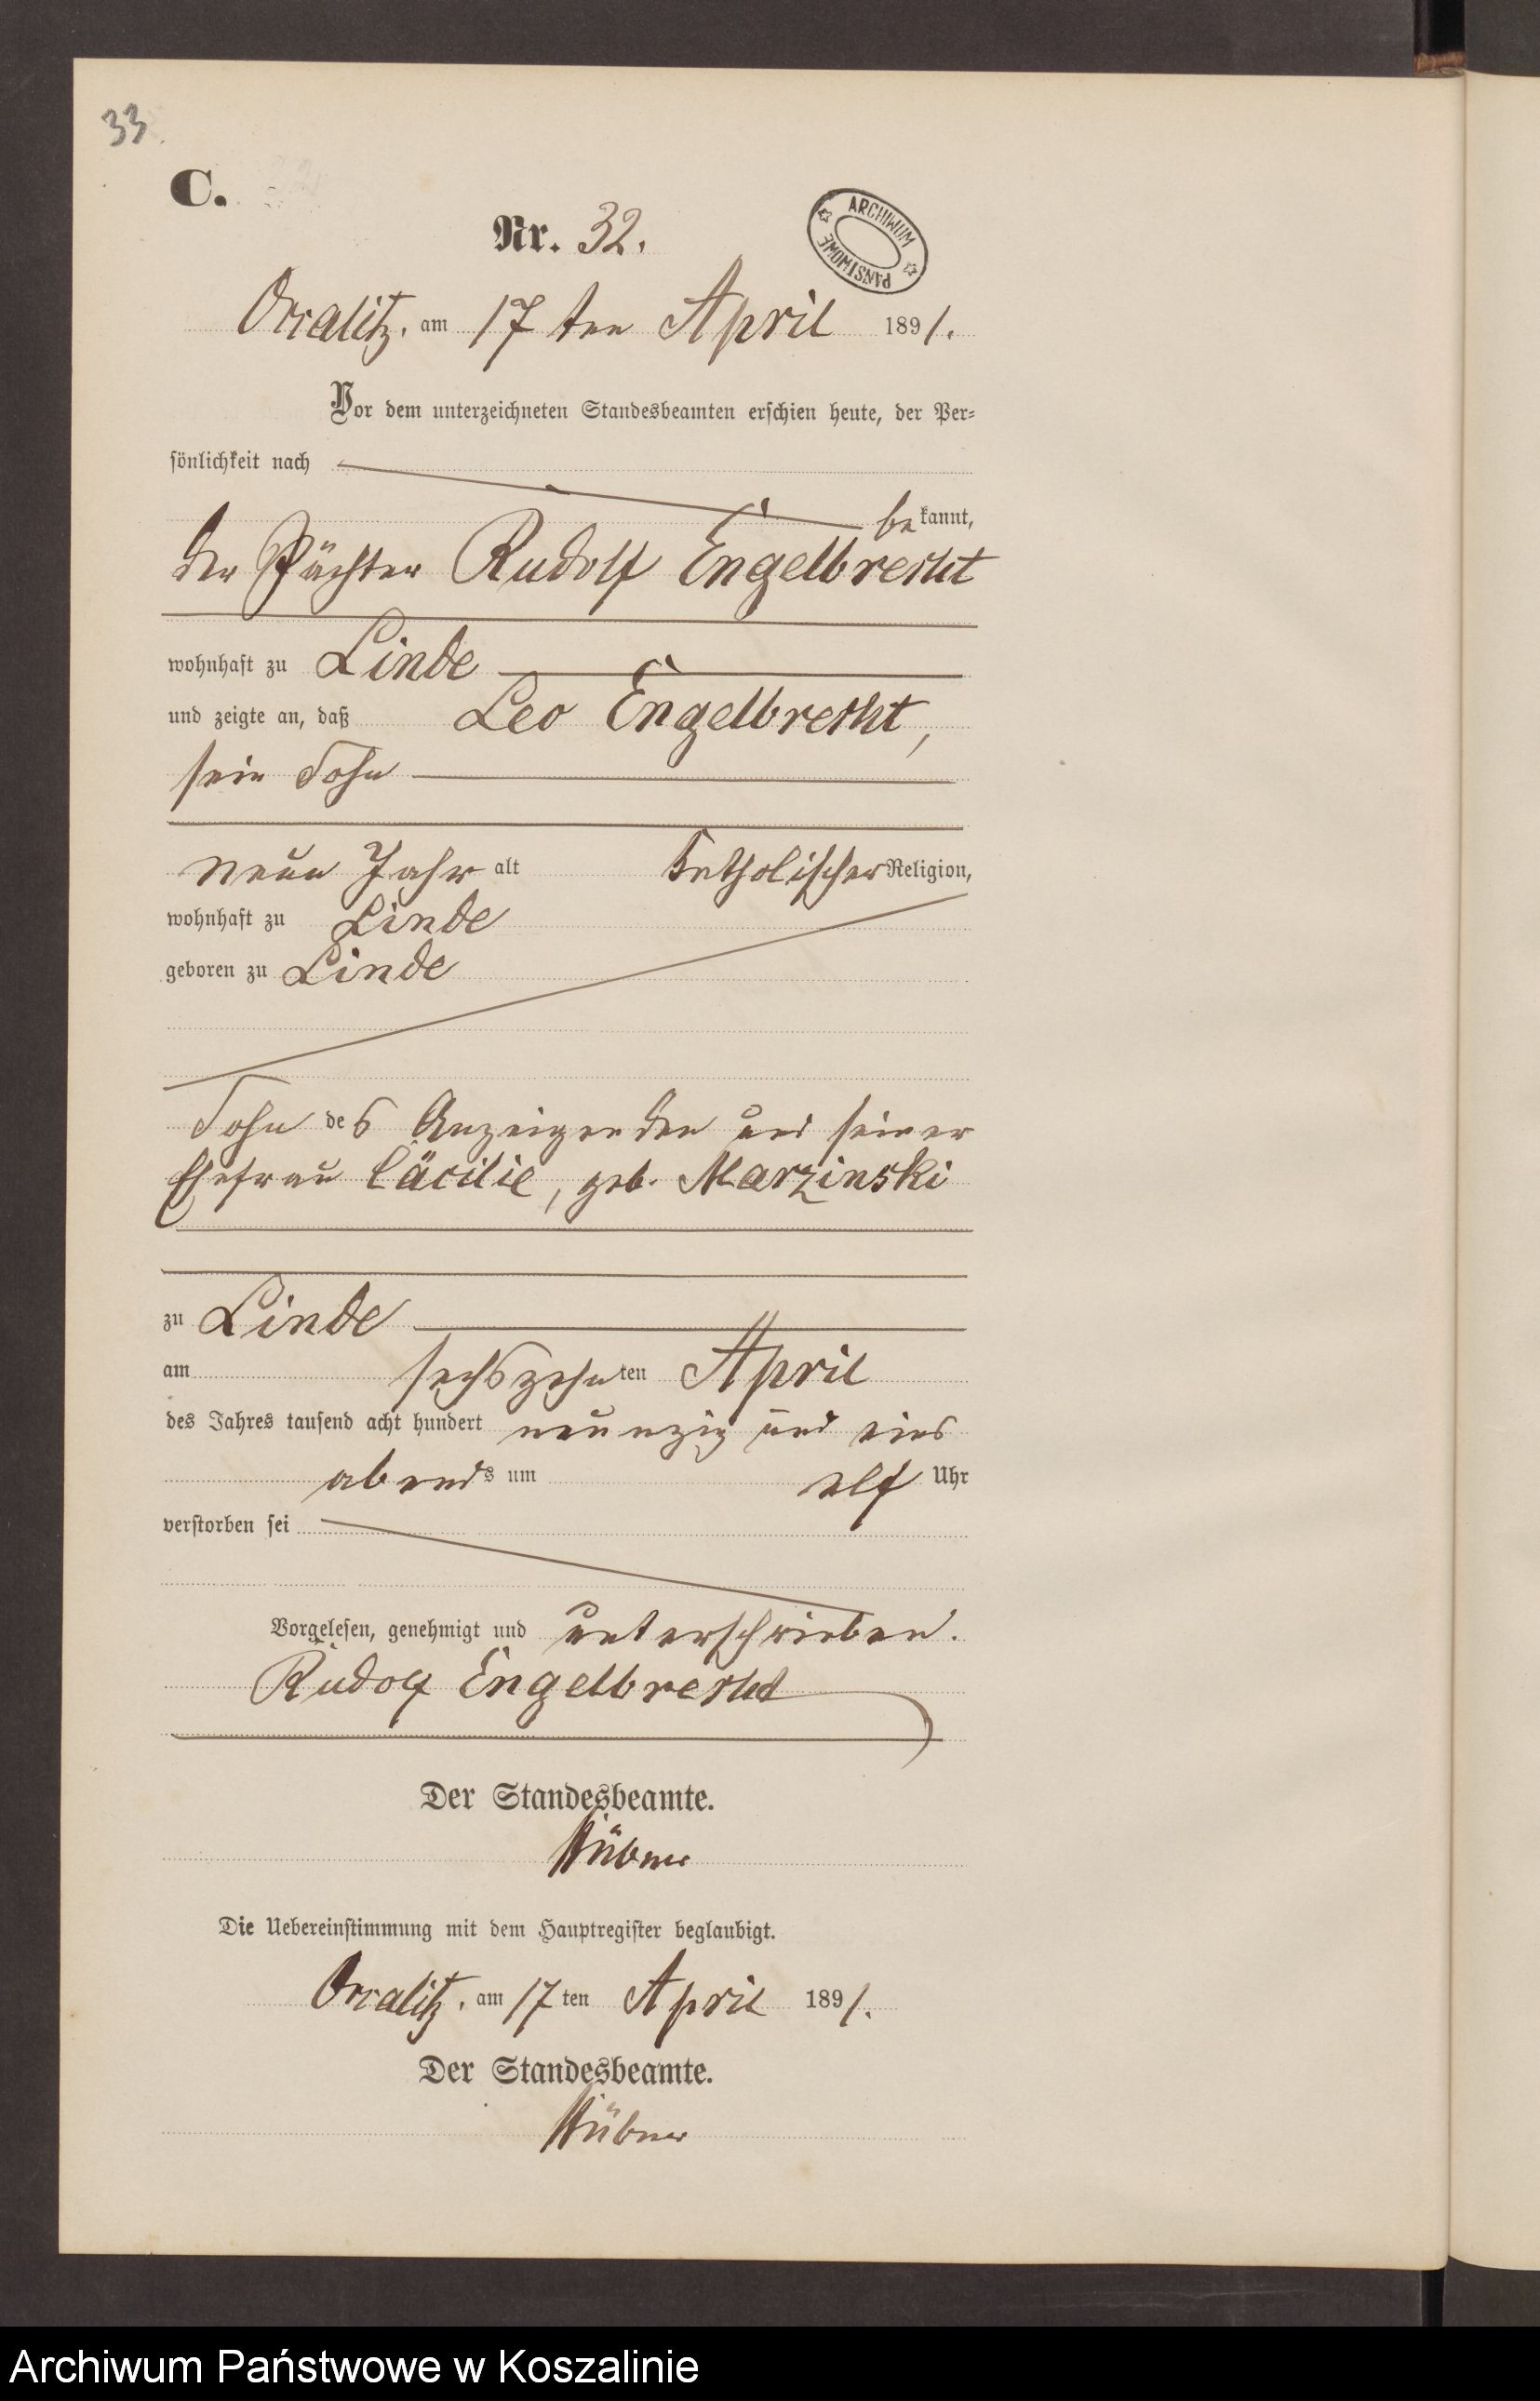 33
C.
Nr. 32.
ARCHIWUM PAŃSTWOWE
Orralitz, am 17 ten April 1891.
Vor dem unterzeichneten Standesbeamten erschien heute, der Per-
sönlichkeit nach
be kannt,
der Pächter Rudolf Engelbrecht
wohnhaft zu Linde
und zeigte an, daß Leo Engelbrecht,
sein Sohn
neun Jahr alt katholischer Religion,
wohnhaft zu Linde
geboren zu Linde
Sohn des Anzeigenden und seiner
Ehefrau Cäcilie, geb. Marzinski
zu Linde
am sechszehnten April
des Jahres tausend acht hundert neunzig und eins
abends um elf Uhr
verstorben sei
Vorgelesen, genehmigt und unterschrieben.
Rudolf Engelbrecht
Der Standesbeamte.
Hübner
Die Uebereinstimmung mit dem Hauptregister beglaubigt.
Orralitz, am 17 ten April 1891.
Der Standesbeamte.
Hübner
Archiwum Państwowe w Koszalinie